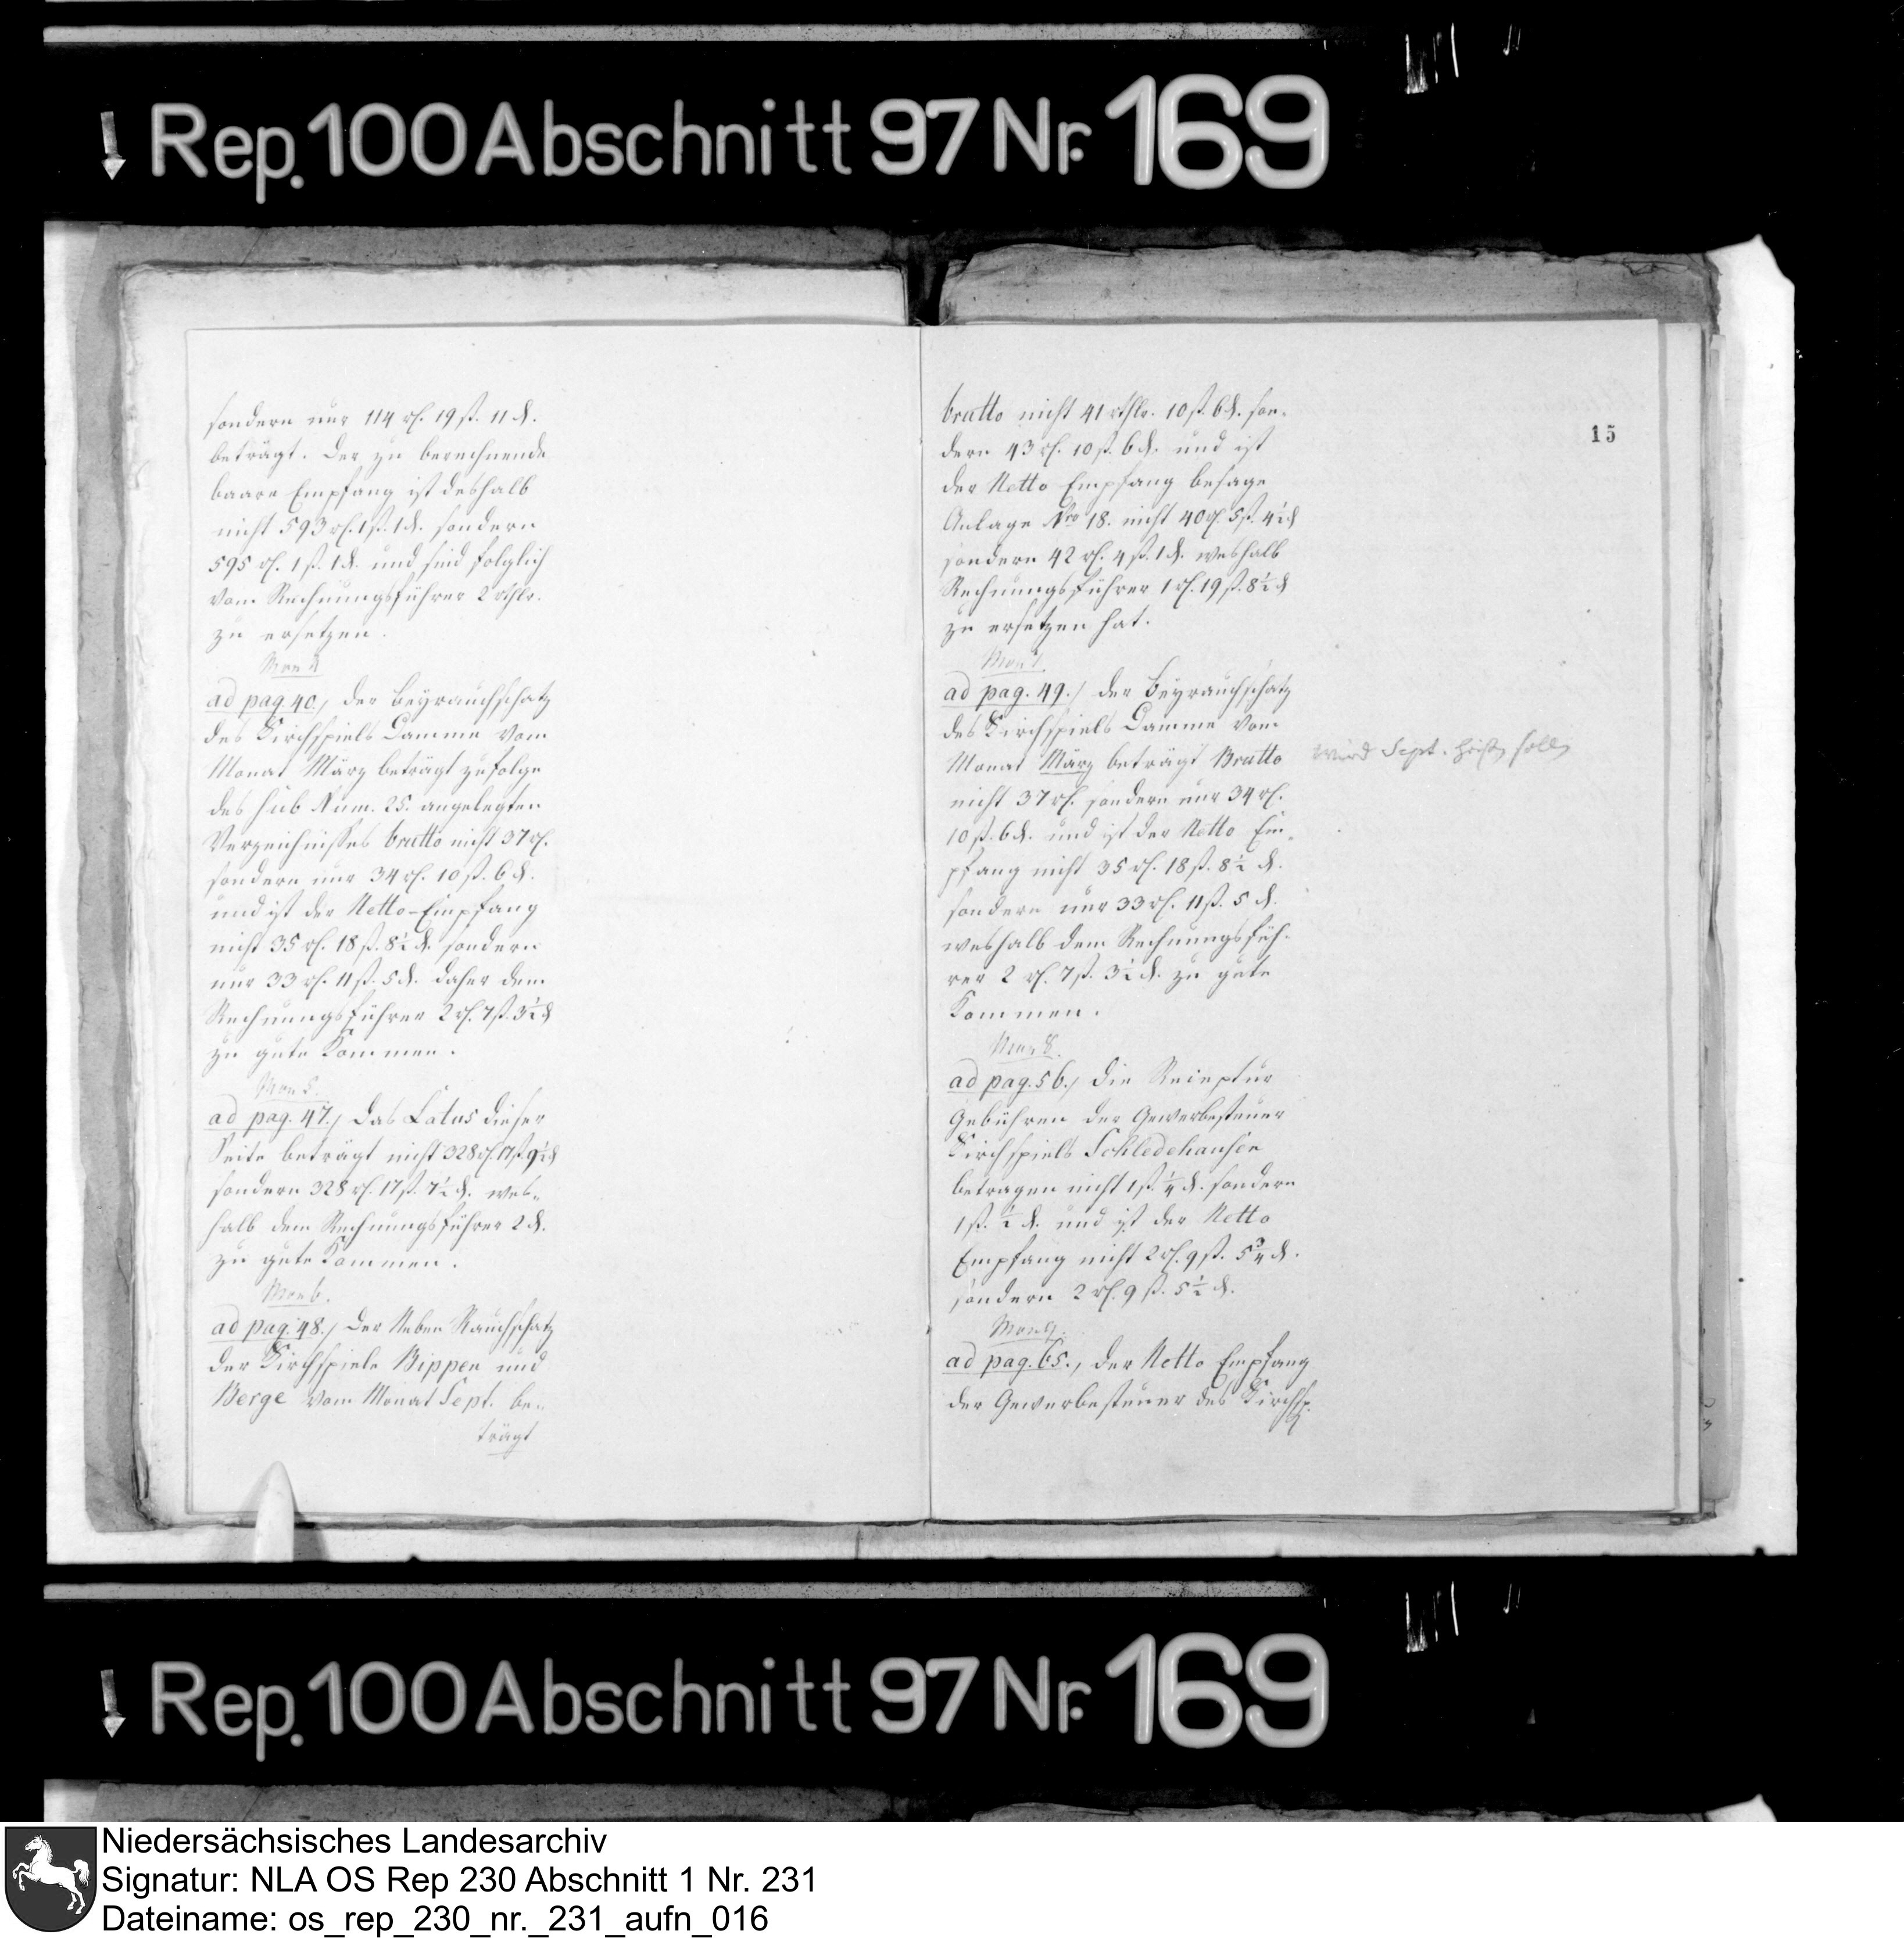 Rep. 100 Abschnitt 97 Nr. 169
sondern nur 114 rl. 19 ß. 11 d.
beträgt. Der zu berechnende
baare Empfang ist deshalb
nicht 593 rl. 1 ß. 1 d. sondern
595 rl. 1 ß. 1 d. und sind folglich
vom Rechnungsführer 2 rthlr.
zu ersetzen.
Mon. 4
ad pag. 40., der Beyrauchschatz
des Kirchspiels Damme vom
Monat März beträgt zufolge
des sub Num. 25. angelegten
Verzeichnisses brutto nicht 37 rl.
sondern nur 34 rl. 10 ß. 6 d.
und ist der Netto-Empfang
nicht 35 rl. 18 ß. 8½ d. sondern
nur 33 rl. 11 ß. 5 d. daher dem
Rechnungsführer 2 rl. 7 ß. 3½ d
zu gute kommen.
Mon. 5.
ad pag. 47., Das Latus dieser
Seite beträgt nicht 328 rl. 17 ß. 9½ d
sondern 328 rl. 17 ß. 7½ d. wes-
halb dem Rechnungsführer 2 d.
zu gute kommen.
Mon. 6.
ad pag. 48., Der Neben Rauchschatz
der Kirchspiele Bippen und
Berge vom Monat Sept. be-
trägt
15
brutto nicht 41 rthlr. 10 ß. 6 d. son-
dern 43 rl. 10 ß. 6 d. und ist
der Netto Empfang besage
Anlage Nro 18. nicht 40 rl. 5 ß. 4½ d
sondern 42 rl. 4 ß. 1 d. weshalb
Rechnungsführer 1 rl. 19 ß. 8½ d
zu ersetzen hat.
Mon. 7.
ad pag. 49., der Beyrauchschatz
des Kirchspiels Damme vom
Monat März beträgt Brutto
wird Sept. heißen sollen
nicht 37 rl. sondern nur 34 rl.
10 ß. 6 d. und ist der Netto Em-
pfang nicht 35 rl. 18 ß. 8½ d.
sondern nur 33 rl. 11 ß. 5 d.
weshalb dem Rechnungsfüh-
rer 2 rl. 7 ß. 3½ d. zu gute
kommen.
Mon. 8.
ad pag. 56., die Receptur
Gebühren der Gewerbesteuer
Kirchspiels Schledehausen
betragen nicht 1 ß. ¼ d. sondern
1 ß. ½ d. und ist der Netto
Empfang nicht 2 rl. 9 ß. 5¾ d.
sondern 2 rl. 9 ß. 5½ d.
Mon. 9.
ad pag. 65., der Netto Empfang
der Gewerbesteuer des Kirchsp.
Rep. 100 Abschnitt 97 Nr. 169
Niedersächsisches Landesarchiv
Signatur: NLA OS Rep 230 Abschnitt 1 Nr. 231
Dateiname: os_rep_230_nr._231_aufn_016